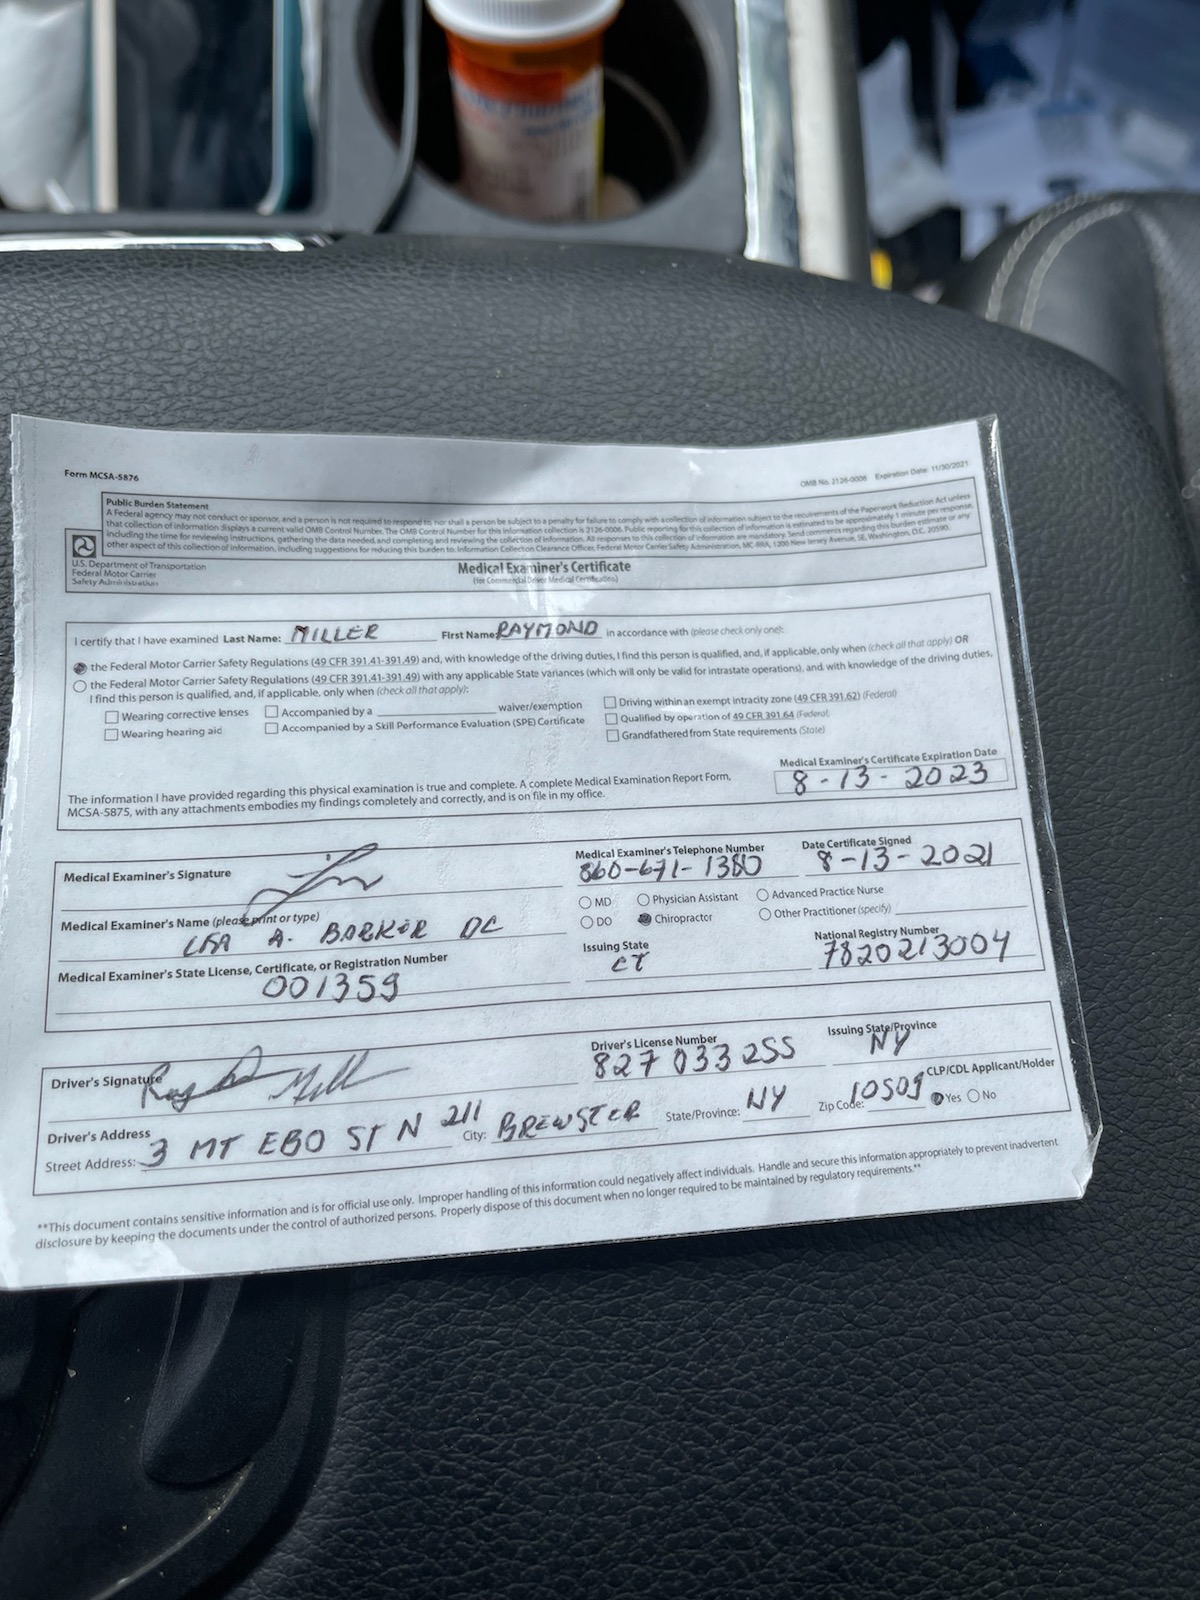 Form MCSA-5876
OMB No. 2126-0006 Expiration Date: 11/30/2021
Public Burden Statement
A Federal agency may not conduct or sponsor, and a person is not required to respond to, nor shall a person be subject to a penalty for failure to comply with a collection of information subject to the requirements of the Paperwork Reduction Act unless
that collection of information displays a current valid OMB Control Number. The OMB Control Number for this information collection is 2126-0006. Public reporting for this collection of information is estimated to be approximately 1 minute per response,
including the time for reviewing instructions, gathering the data needed, and completing and reviewing the collection of information. All responses to this collection of information are mandatory. Send comments regarding this burden estimate or any
other aspect of this collection of information, including suggestions for reducing this burden to: Information Collection Clearance Officer, Federal Motor Carrier Safety Administration, MC-RRA, 1200 New Jersey Avenue, SE, Washington, D.C. 20590.
U.S. Department of Transportation
Federal Motor Carrier
Safety Administration
Medical Examiner's Certificate
(for Commercial Driver Medical Certification)
I certify that I have examined Last Name: MILLER First Name: RAYMOND in accordance with (please check only one):
the Federal Motor Carrier Safety Regulations (49 CFR 391.41-391.49) and, with knowledge of the driving duties, I find this person is qualified, and, if applicable, only when (check all that apply) OR
the Federal Motor Carrier Safety Regulations (49 CFR 391.41-391.49) with any applicable State variances (which will only be valid for intrastate operations), and, with knowledge of the driving duties,
I find this person is qualified, and, if applicable, only when (check all that apply):
Wearing corrective lenses Accompanied by a waiver/exemption Driving within an exempt intracity zone (49 CFR 391.62) (Federal)
Wearing hearing aid Accompanied by a Skill Performance Evaluation (SPE) Certificate Qualified by operation of 49 CFR 391.64 (Federal)
Grandfathered from State requirements (State)
Medical Examiner's Certificate Expiration Date
8-13-2023
The information I have provided regarding this physical examination is true and complete. A complete Medical Examination Report Form,
MCSA-5875, with any attachments embodies my findings completely and correctly, and is on file in my office.
Medical Examiner's Signature
Medical Examiner's Telephone Number
860-671-1380
Date Certificate Signed
8-13-2021
MD Physician Assistant Advanced Practice Nurse
DO Chiropractor Other Practitioner (specify)
Medical Examiner's Name (please print or type)
A. BARKER DC
Issuing State
CT
National Registry Number
7820213004
Medical Examiner's State License, Certificate, or Registration Number
001359
Driver's Signature
Driver's License Number
827 033 255
Issuing State/Province
NY
Driver's Address
Street Address: 3 MT EBO ST N 211 City: BREWSTER State/Province: NY Zip Code: 10509
CLP/CDL Applicant/Holder
Yes No
**This document contains sensitive information and is for official use only. Improper handling of this information could negatively affect individuals. Handle and secure this information appropriately to prevent inadvertent
disclosure by keeping the documents under the control of authorized persons. Properly dispose of this document when no longer required to be maintained by regulatory requirements.**